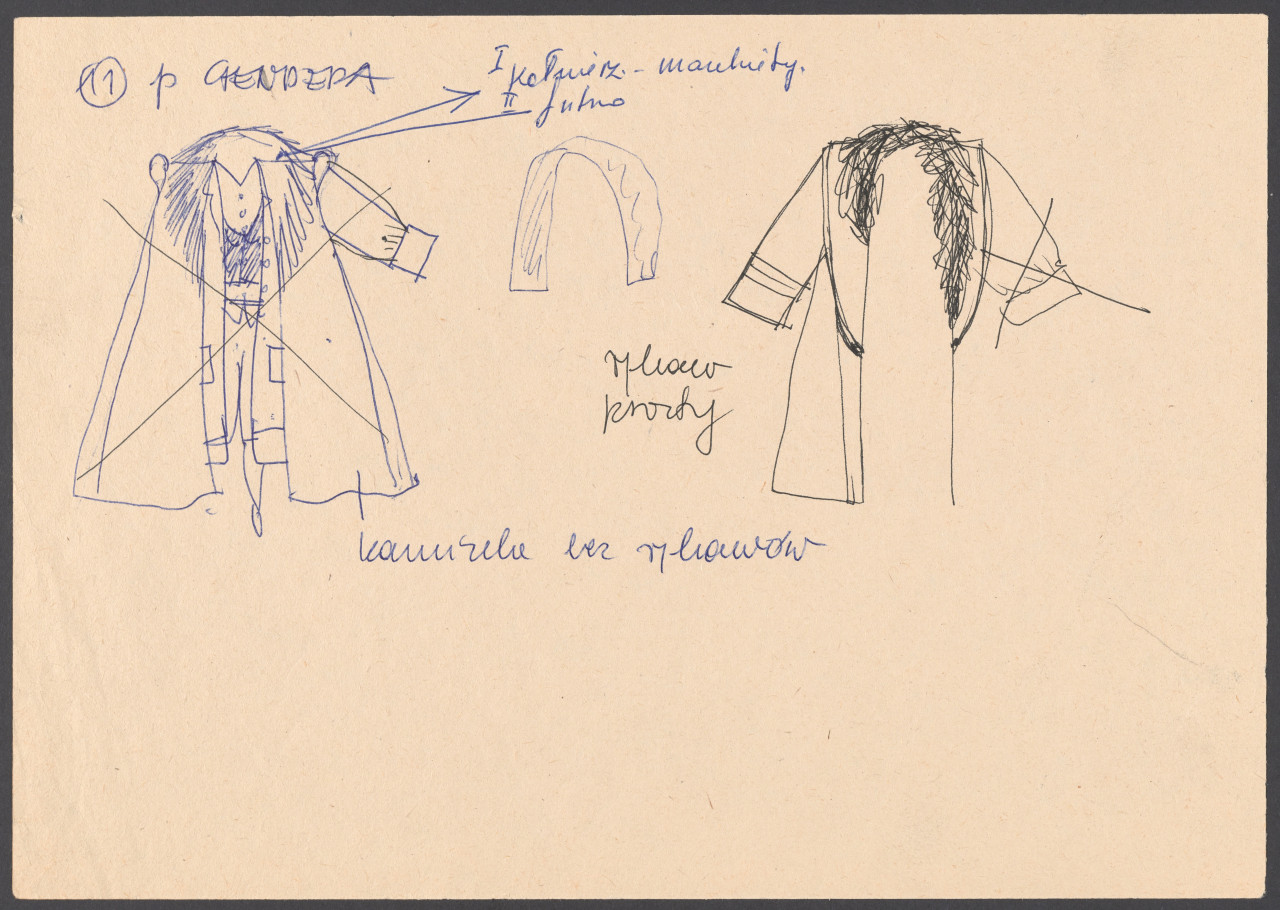 11 p GENDERA
I kołnierz - mankiety.
II futro
rękaw
prosty
kamizelka bez rękawów